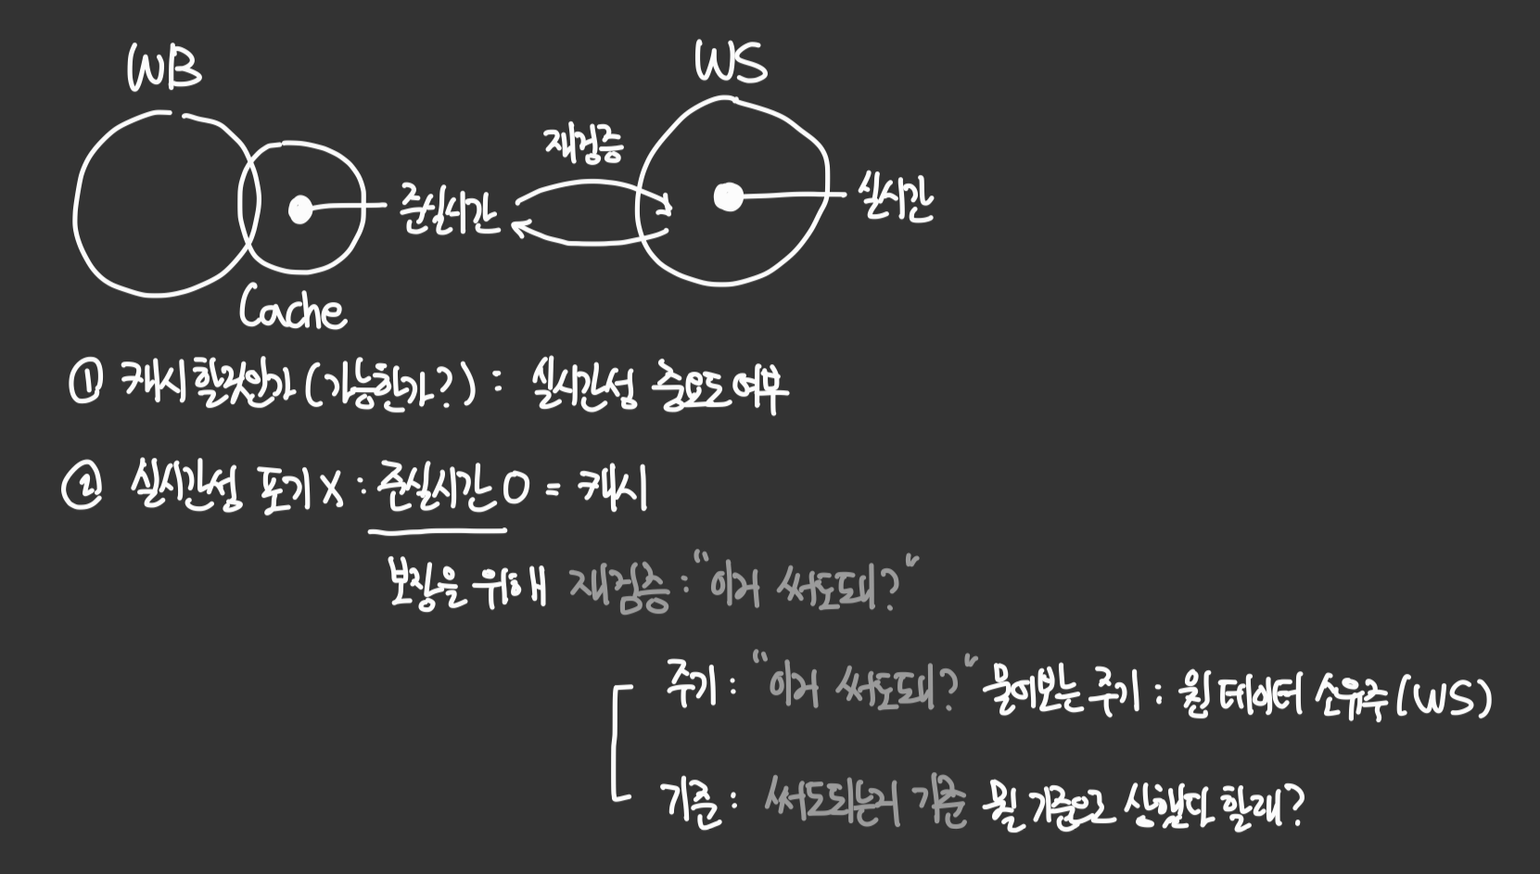 WB
WS
재검증
준실시간
실시간
Cache
① 캐시 할것인가 (가능한가?) : 실시간성 중요도 여부
② 실시간성 포기 X : 준실시간 O = 캐시
보장을 위해 재검증 : "이거 써도돼?"
주기 : "이거 써도돼?" 물어보는 주기 : 원 데이터 소유주 (WS)
기준 : 써도되는거 기준 뭘 기준으로 상했다 할래?